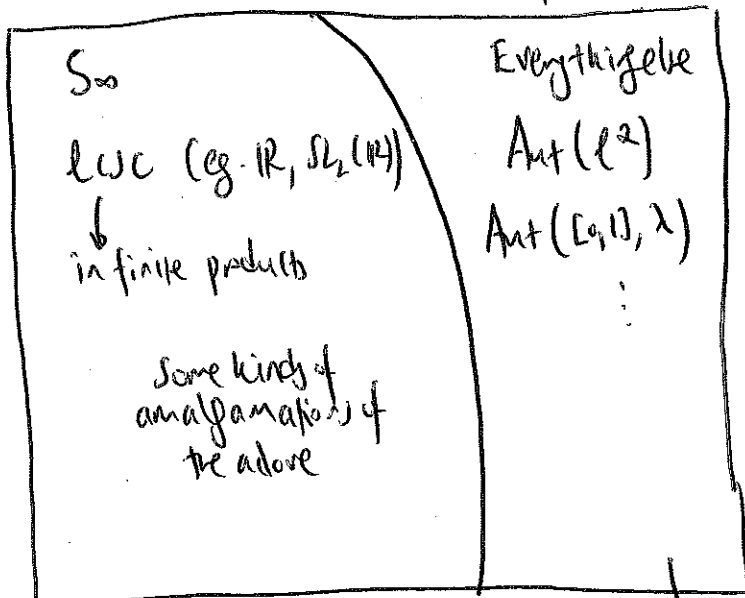 S∞
lcsc (eg. ℝ, SL₂(ℝ))
↓
infinite products
Some kinds of
amalgamations of
the above
Everything else
Aut(ℓ²)
Aut([0,1], λ)
⋮